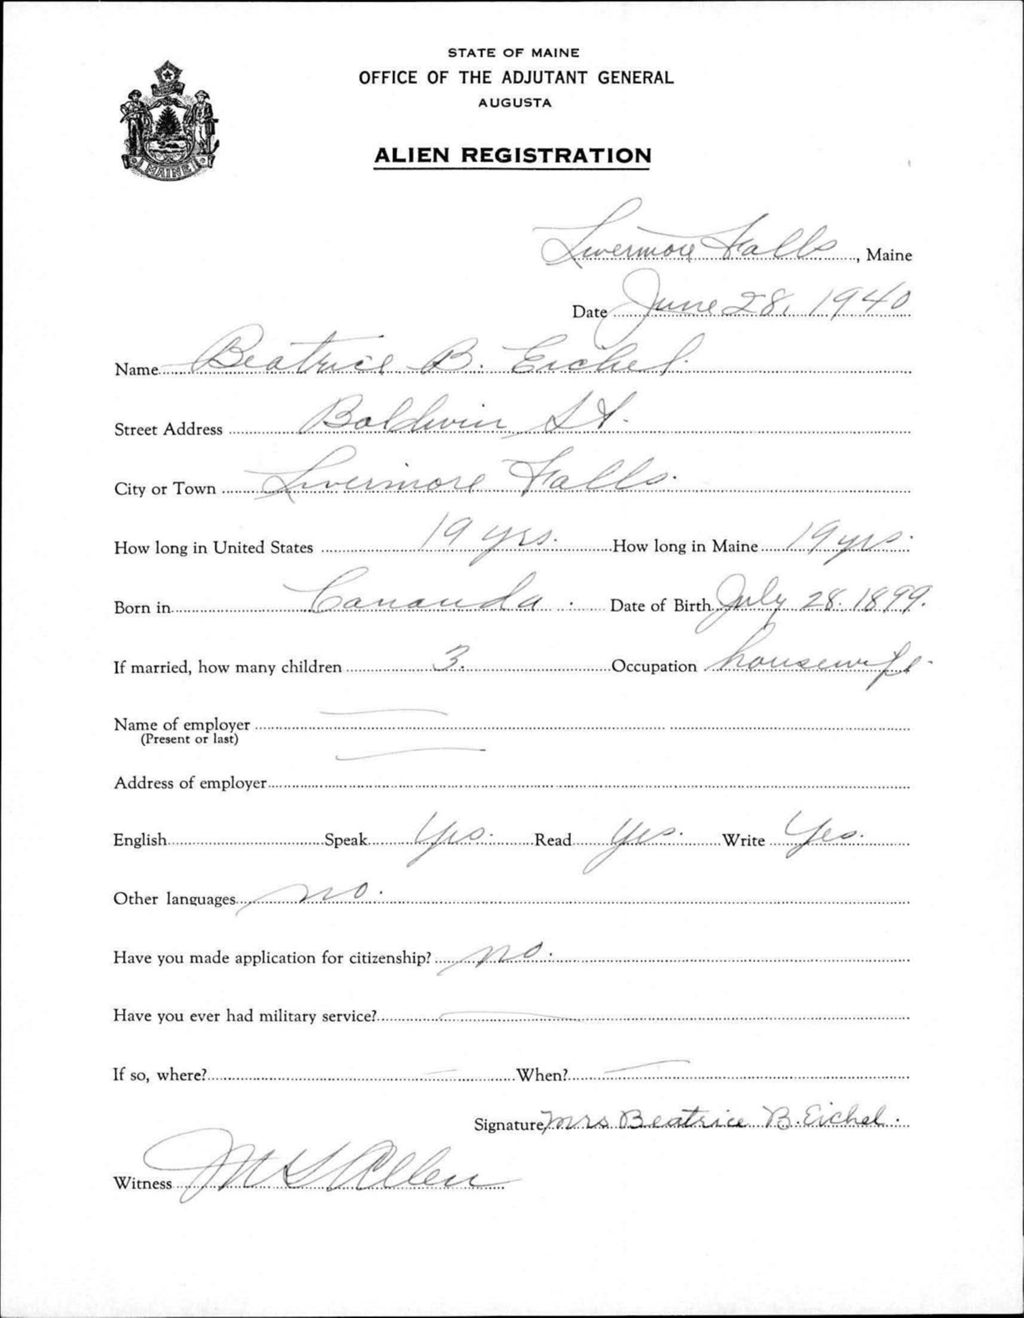 STATE OF MAINE
OFFICE OF THE ADJUTANT GENERAL
AUGUSTA
ALIEN REGISTRATION
MAINE
Livermore Falls, Maine
Date June 28, 1940
Name Beatrice B. Eichel.
Street Address Baldwin St.
City or Town Livermore Falls.
How long in United States 19 yrs. How long in Maine 19 yrs.
Born in Cananda. Date of Birth July 28. 1899.
If married, how many children 3. Occupation housewife.
Name of employer —
(Present or last)
Address of employer —
English Speak Yes. Read Yes. Write Yes.
Other languages no.
Have you made application for citizenship? no.
Have you ever had military service? —
If so, where? — When? —
Signature Mrs Beatrice B. Eichel.
Witness M S Allen